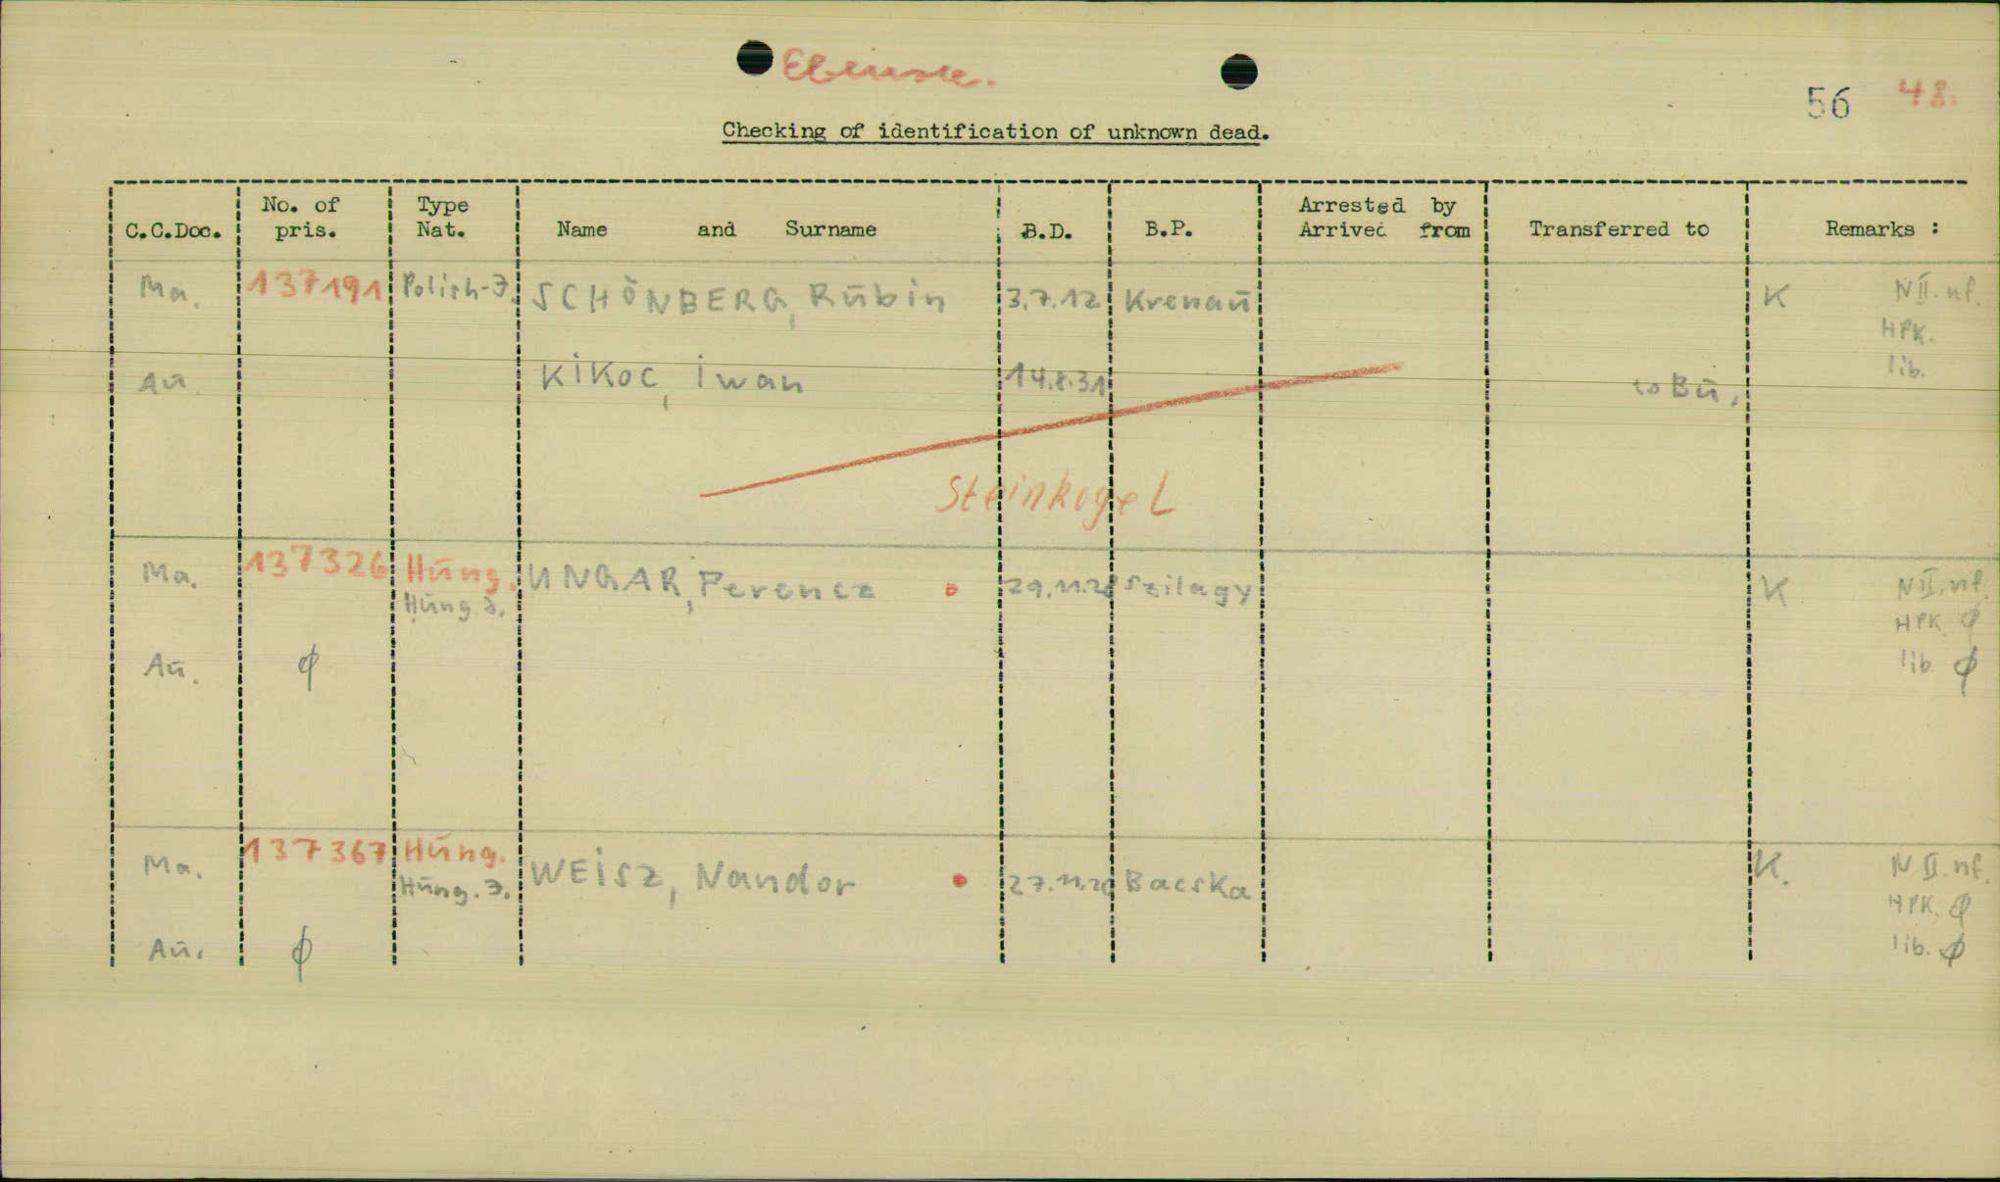 Ebensee.
56 48.
Checking of identification of unknown dead.
C.C.Doc. No. of pris. Type Nat. Name and Surname B.D. B.P. Arrested by Arrived from Transferred to Remarks :
Ma. 137191 Polish-J. SCHÖNBERG, Rubin 3.7.12 Krenau K N II. nf.
HPK.
lib.
Au. Kikoc, Iwan 14.8.31 to Bu.
Steinkogel
Ma. 137326 Hung. UNGAR, Ferencz 29.11.28 Szilagy K N II. nf.
Hung J.
HPK ϕ
Au. ϕ lib ϕ
Ma. 137367 Hung. WEISZ, Nandor 27.11.20 Bacska K. N II. nf.
Hung. J.
HPK. ϕ
Au. ϕ lib. ϕ